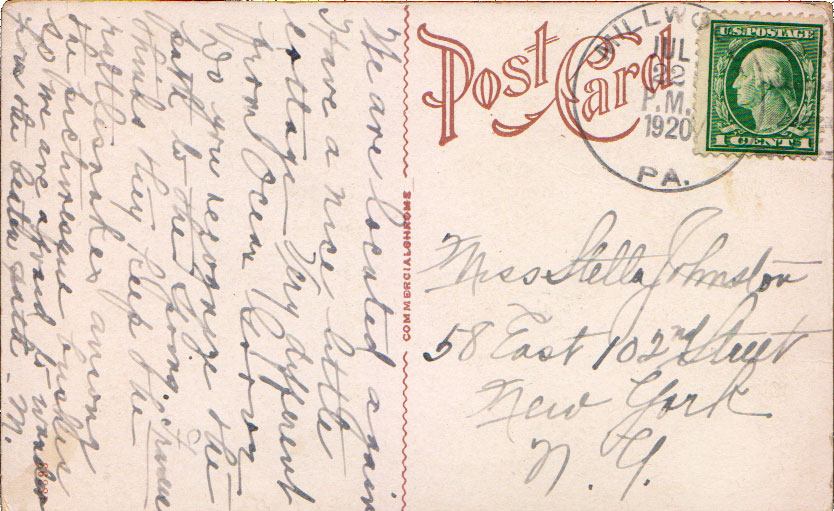 Post Card
MILLWO
JUL
22
P.M.
1920
PA.
U.S. POSTAGE
1 CENT 1
COMMERCIALCHROME
Miss Stella Johnston
58 East 102nd Street
New York
N. Y.
We are located again
Have a nice little
cottage - Very different
from Ocean Grove
Do you recognize the
path to the Spring.
think they keep the
rattlesnakes among
the picturesque
so we are afraid to wander
from the beaten path - M.